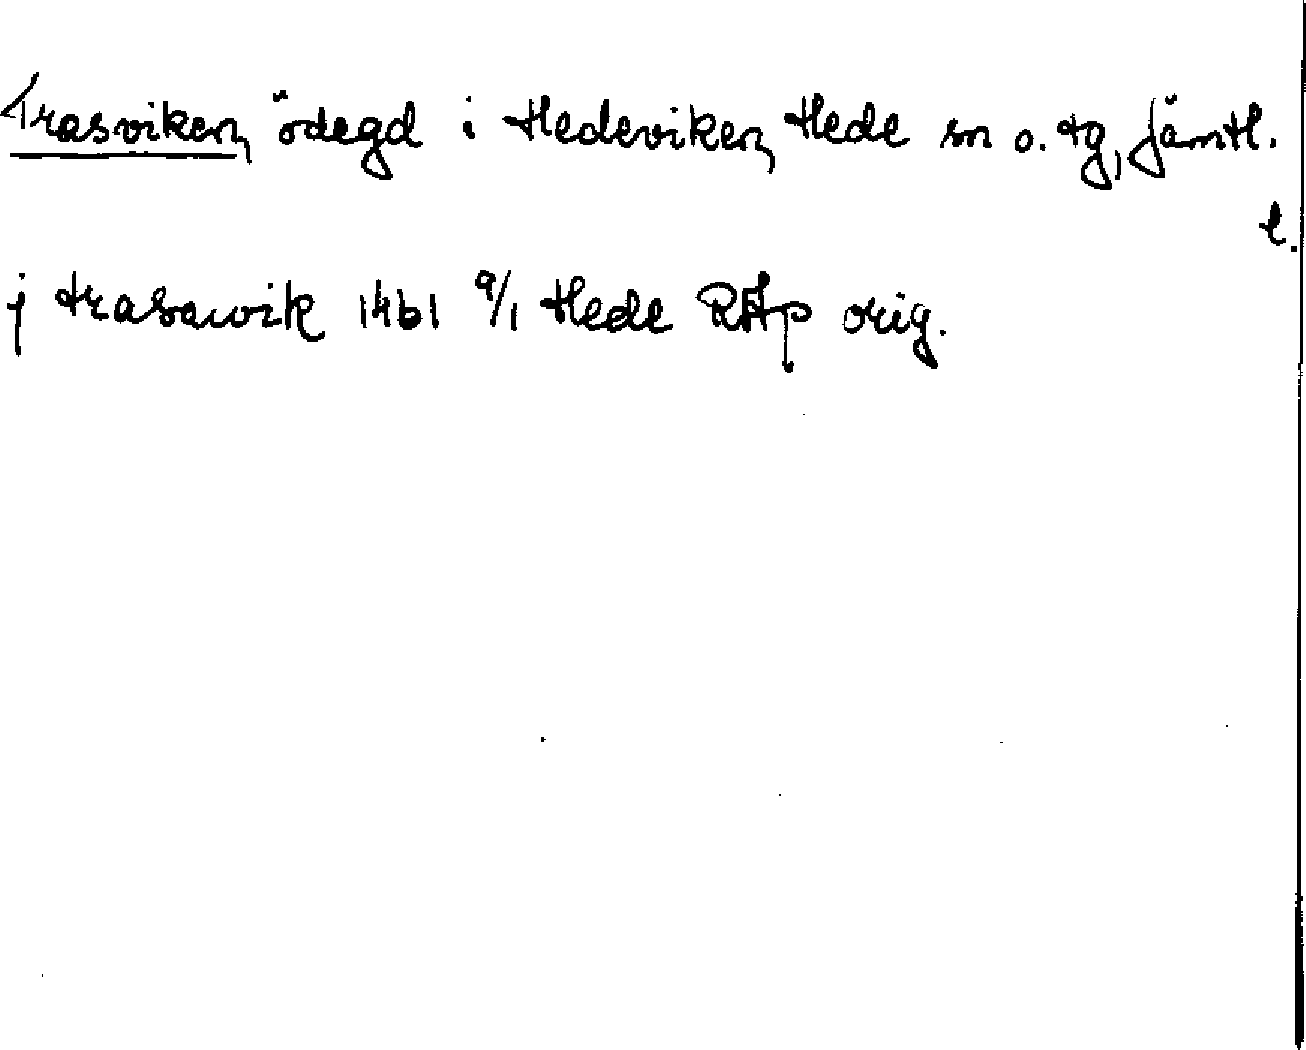 Trasviken, ödegd i Hedeviken, Hede sn o. tg, Jämtl.
l.
j trasawik 1461 9/1 Hede RAp orig.